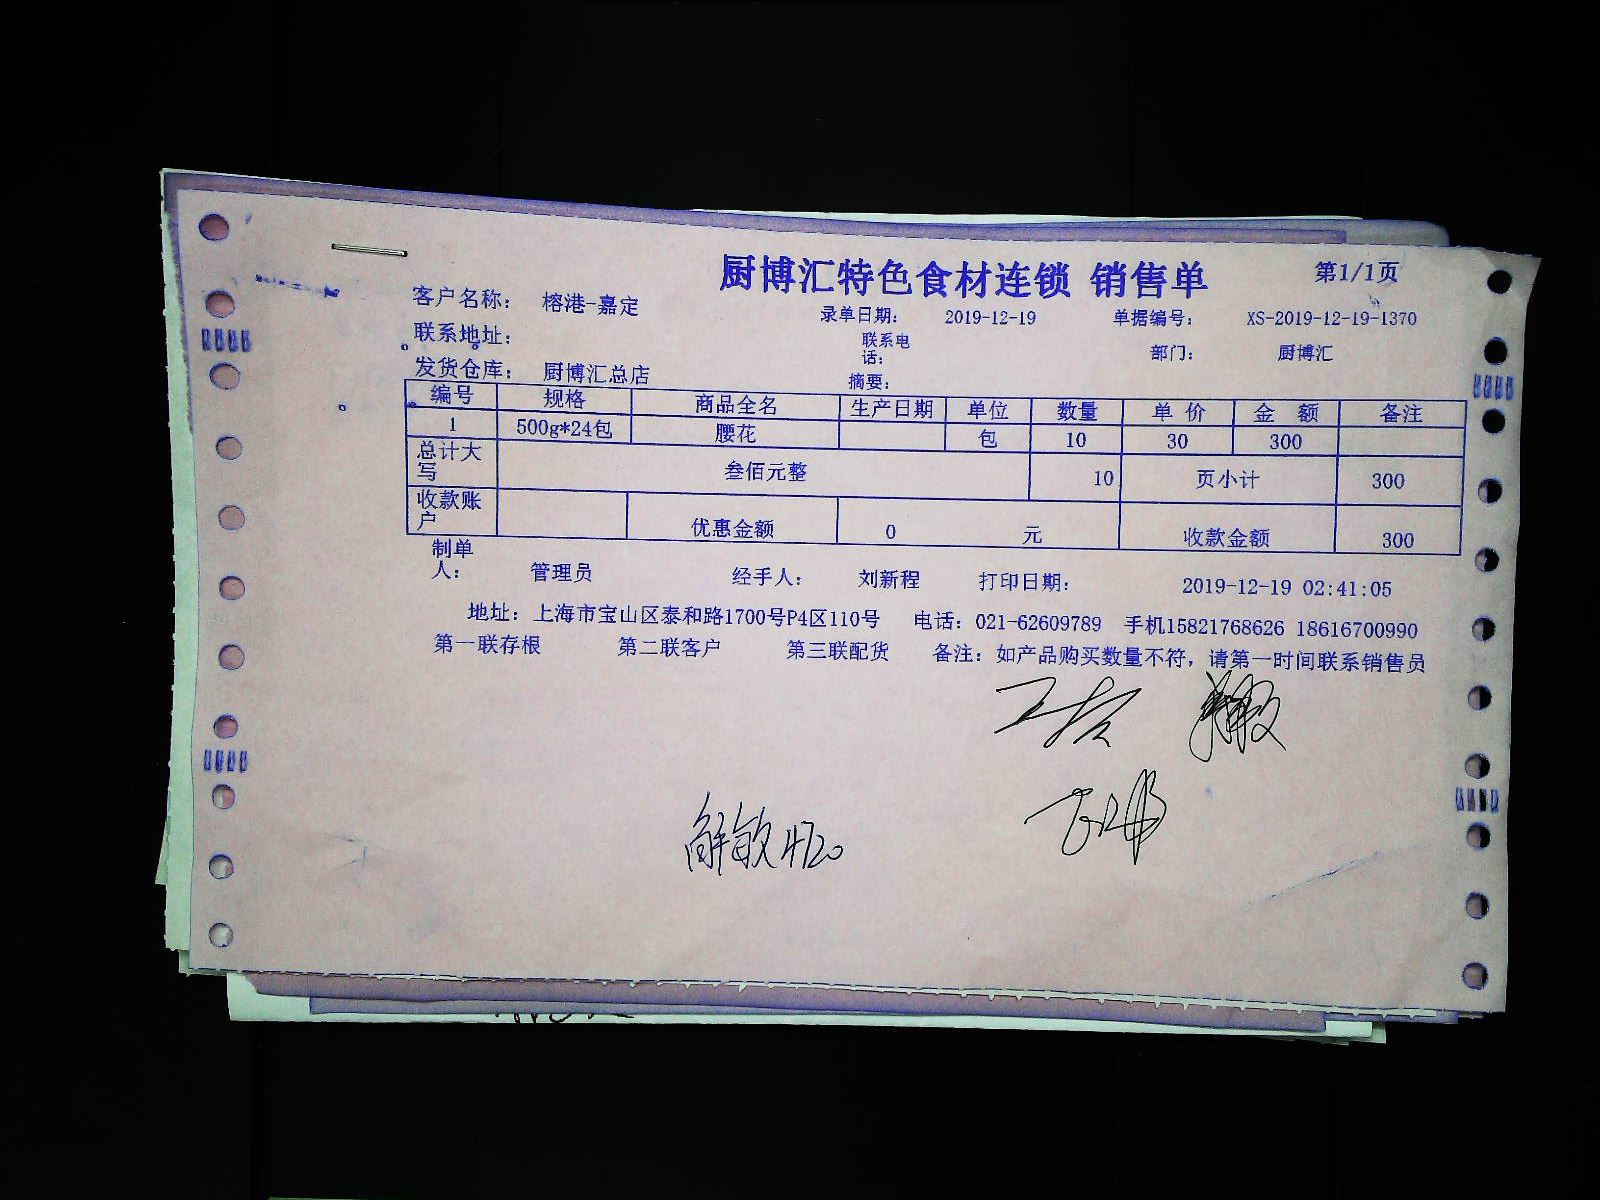 厨博汇特色食材连锁 销售单 第1/1页
客户名称： 榕港-嘉定 录单日期： 2019-12-19 单据编号： XS-2019-12-19-1370
联系地址： 联系电话： 部门： 厨博汇
发货仓库： 厨博汇总店 摘要：
编号 规格 商品全名 生产日期 单位 数量 单 价 金 额 备注
1 500g*24包 腰花 包 10 30 300
总计大写 叁佰元整 10 页小计 300
收款账户 优惠金额 0 元 收款金额 300
制单人： 管理员 经手人： 刘新程 打印日期： 2019-12-19 02:41:05
地址：上海市宝山区泰和路1700号P4区110号 电话：021-62609789 手机15821768626 18616700990
第一联存根 第二联客户 第三联配货 备注：如产品购买数量不符，请第一时间联系销售员